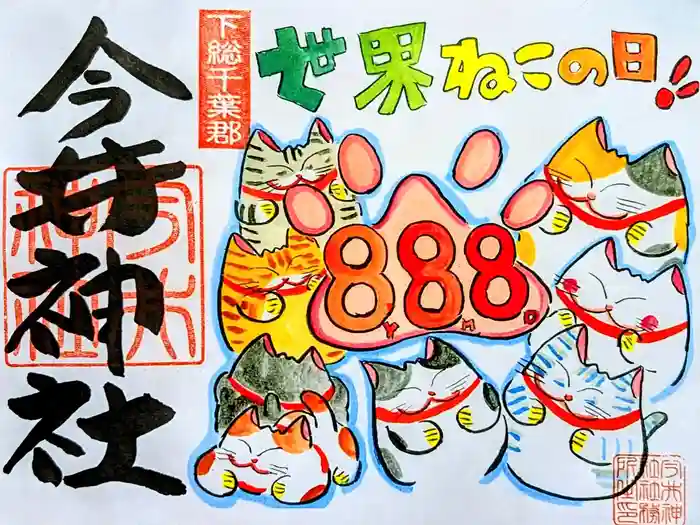 世界ねこの日!!
下総千葉郡
今井神社
今井
神社
888
Y M D
今井神
社社務
所之印